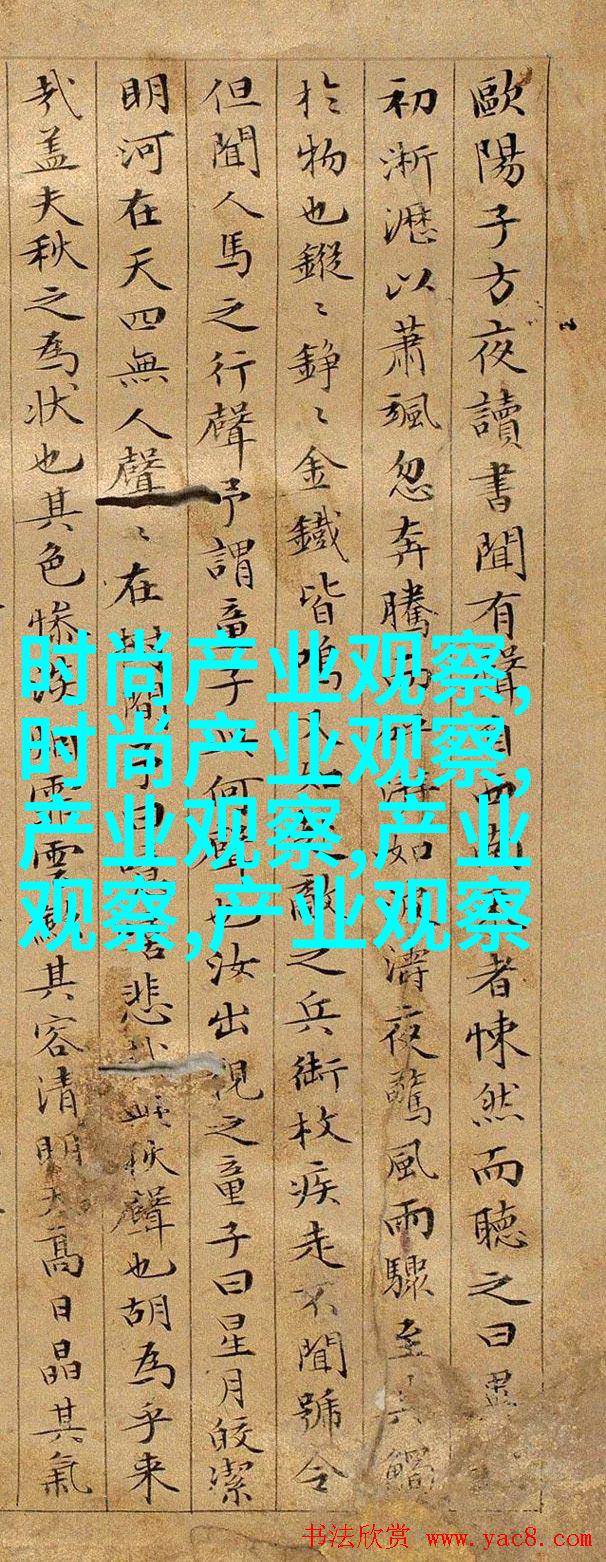 歐陽子方夜讀書聞有聲自西南者悚然而聽之曰異
初淅瀝以蕭颯忽奔騰而砰如濤夜驚風雨驟至其觸
於物也鏦〻錚〻金鐵皆鳴又敵之兵銜枚疾走不聞號令
但聞人馬之行聲予謂童子此何聲也汝出視之童子曰星月皎潔
明河在天四無人聲〻在樹間予曰悲哉此秋聲也胡為乎来
哉蓋夫秋之為狀也其色慘淡烟霏雲斂其容清明天高日晶其氣
时尚产业观察,
时尚产业观察,
产业观察,产业
观察,产业观察
书法欣赏 www.yac8.com